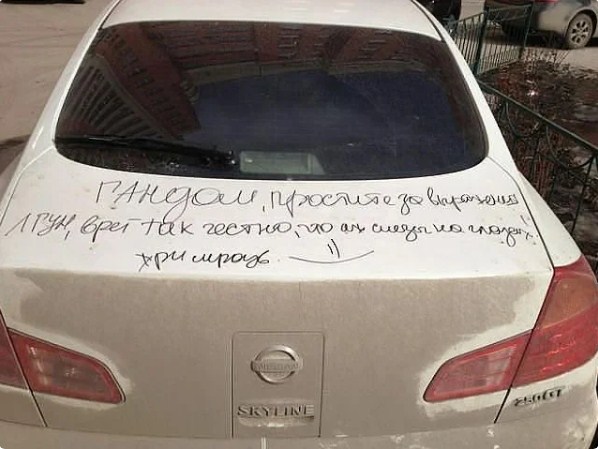 ГАНДОН, простите за выражение
ЛГУН, врет так честно, что аж слезы на глазах!
мразь. :)
NISSAN
SKYLINE
250GT